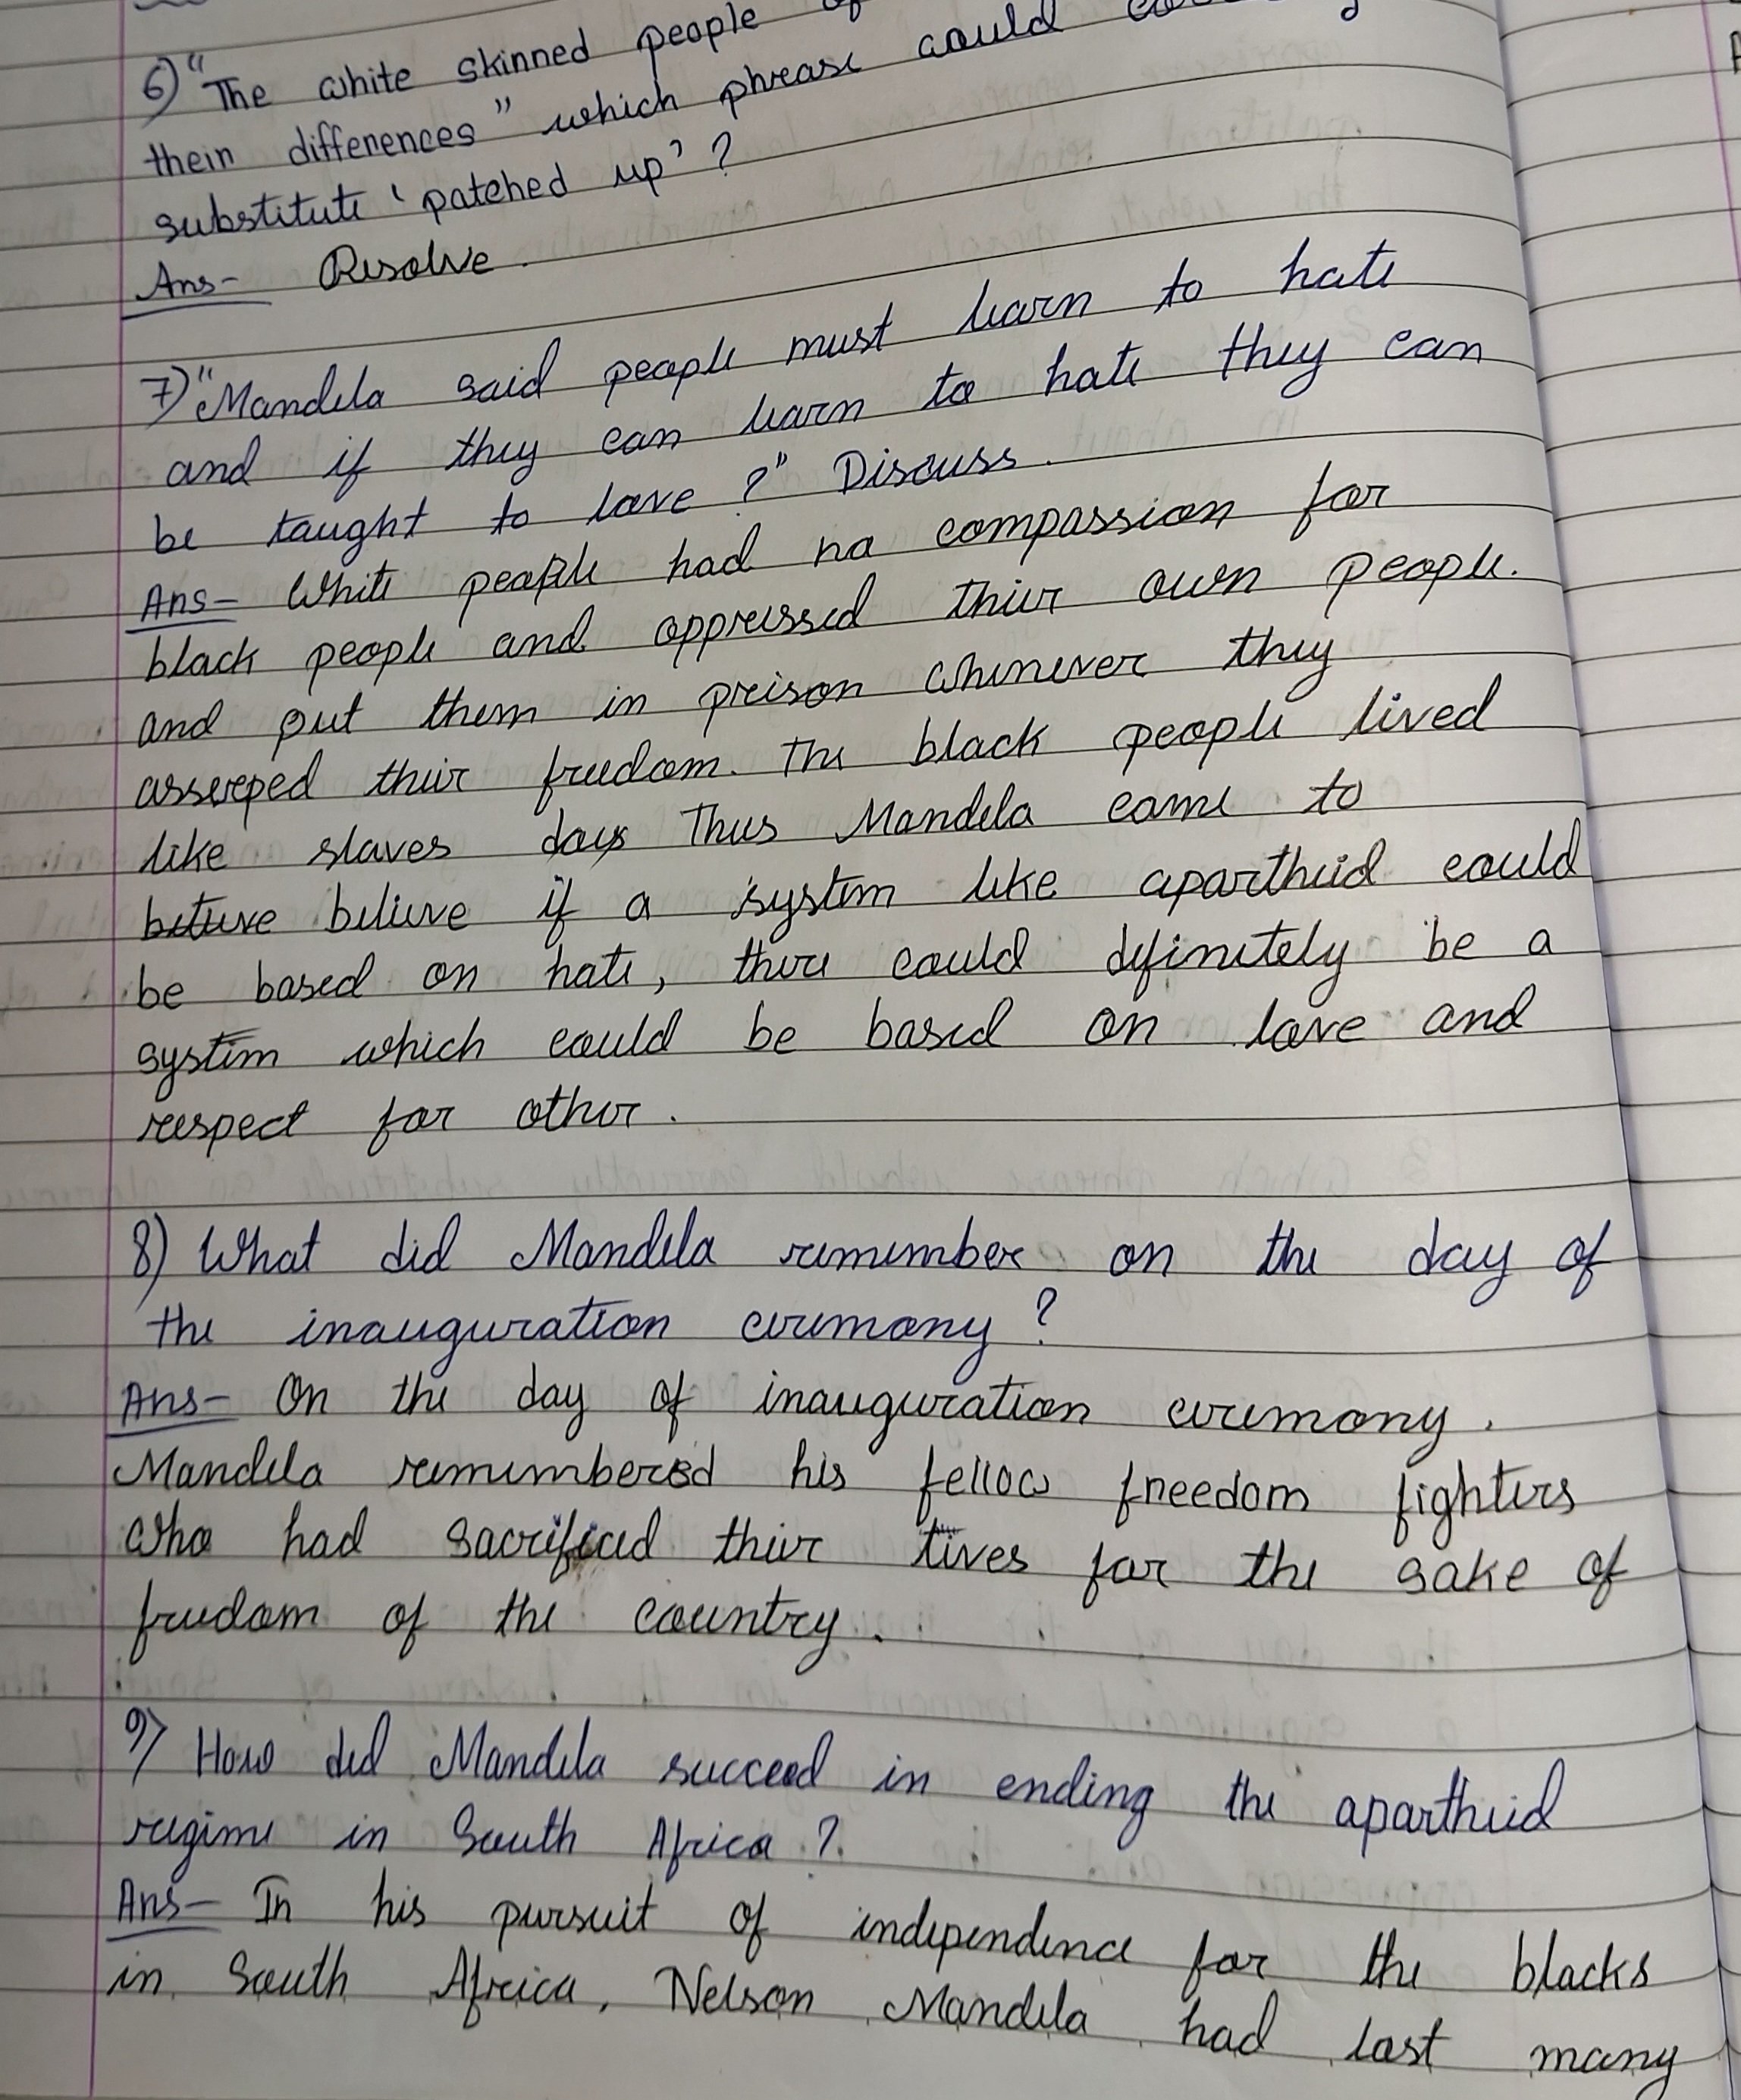 6) "The white skinned people
their differences" which phrase could
substitute 'patched up' ?
Ans- Resolve.
7) "Mandela said people must learn to hate
and if they can learn to hate they can
be taught to love ?" Discuss.
Ans- White people had no compassion for
black people and oppressed their own people.
and put them in prison whenever they
asserped their freedom. The black people lived
like slaves days Thus Mandela came to
believe if a system like apartheid could
be based on hate, there could definitely be a
system which could be based on love and
respect for other.
8) What did Mandela remember on the day of
the inauguration ceremony ?
Ans- On the day of inauguration ceremony.
Mandela remembered his fellow freedom fighters
who had sacrificed their lives for the sake of
freedom of the country.
9) How did Mandela succeed in ending the apartheid
regime in South Africa ?
Ans- In his pursuit of independence for the blacks
in South Africa, Nelson Mandela had lost many